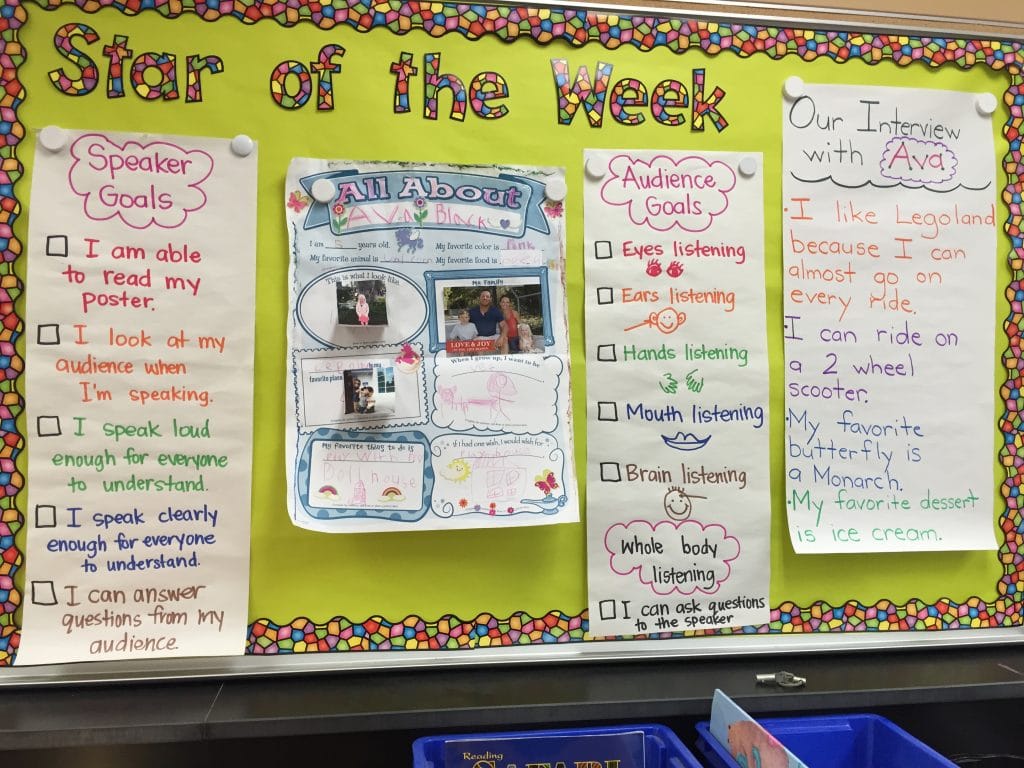 Star of the Week
Speaker
Goals
I am able
to read my
poster.
I look at my
audience when
I'm speaking.
I speak loud
enough for everyone
to understand.
I speak clearly
enough for everyone
to understand.
I can answer
questions from my
audience.
All About
I am 5 years old.
My favorite color is
My favorite animal is
My favorite food is
This is what I look like
My Family
LOVE & JOY
favorite place
When I grow up, I want to be
My favorite thing to do is
Doll house
If I had one wish, I would wish for
Audience
Goals
Eyes listening
Ears listening
Hands listening
Mouth listening
Brain listening
whole body
listening
I can ask questions
to the speaker
Our Interview
with Ava
·I like Legoland
because I can
almost go on
every ride.
·I can ride on
a 2 wheel
scooter.
·My favorite
butterfly is
a Monarch.
·My favorite dessert
is ice cream.
Reading
SAFARI